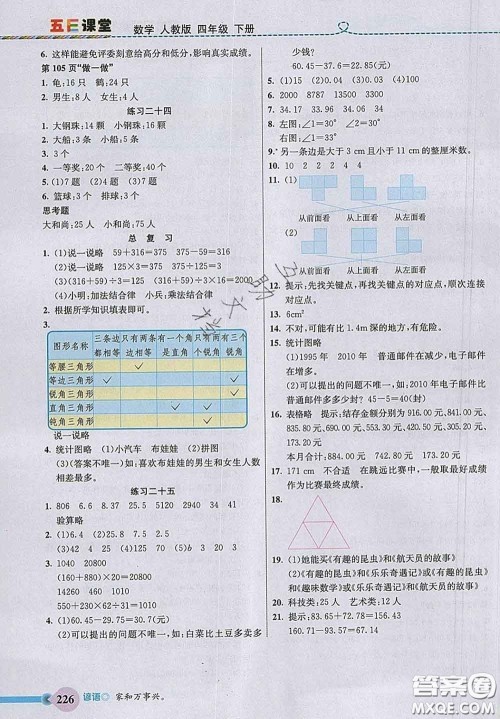 五E课堂 数学 人教版 四年级 下册
6. 这样能避免评委刻意给高分和低分，影响真实成绩。
第 105 页“做一做”
1. 龟:16 只 鹤:24 只
2. 男生:8 人 女生:4 人
练习二十四
1. 大钢珠:14 颗 小钢珠:16 颗
2. 大船:3 条 小船:5 条
3. 3 个
4. 一等奖:20 个 二等奖:40 个
5. (1)7 题 (2)3 题
6. 篮球:3 个 排球:11 个
思考题
大和尚:25 人 小和尚:75 人
总 复 习
1. (1)说一说略 59+316=375 375−59=316
(2)说一说略 125×3=375 375÷125=3
(3)说一说略
(4)小明:加法结合律 小兵:乘法结合律
2. 根据所学知识填表即可。
3.
图形名称 三条边都相等 只有两条边相等 有一个角是直角 只有两个锐角 有三个锐角
等腰三角形 ✓
等边三角形 ✓ ✓
锐角三角形 ✓
直角三角形 ✓ ✓
钝角三角形 ✓
说一说略
4. 统计图略 (1)小汽车 布娃娃 (2)拼图
(3)(答案不唯一)如:喜欢布娃娃的男生和女生人数相差最大。
练习二十五
1. 806 6.6 8.64 30.8 1.06 1064
验算略
2. (1)6.4 25.8 7.5 2.5
(2)32 0.29 150 440
3. (10+440)÷20=22.5
(160+880)×20=20800
(160−120)×20=800
(160+120)÷20=14
4. (1)29.24元
(2)可以提出的问题不唯一,如:白菜比土豆多卖多少
少钱?
60.45−37.6=22.85(元)
5. (1)15 (2)0.24 (3)40 0.4
6. 2000 8787 13500 3300
7. 34.17 33.96 34.08
8. 左图:
右图:
9. 另一条边是大于 3 cm 且小于 11 cm 的整厘米数。
10. 2 2 4 4
11. (1)
从前面看 从上面看 从左面看
(2)
从前面看 从上面看 从左面看
12. 提示:先找关键点,再找关键点的对应点,顺次连接对应点。
13. 6cm²
14. 不对,可能有比 1.4m 深的地方,有危险。
15. 统计图略
(1)1995 年 2010 年 普通邮件在减少,电子邮件在增多。
(2)可以提出的问题不唯一,如:2010 年电子邮件比普通邮件多多少封? 45−5=40(封)
16. 表格略 提示:结存金额分别为 916.00 元,841.00 元,833.20 元,820.40 元,815.20 元,883.50 元,873.50元,853.30元,844.10元,
本月合计:884.10 元 830.00 元 844.10 元
17. 171cm 不合适 在跳远比赛中,一般把最好成绩作为比赛最终成绩。
18.
19. (1)她能买《有趣的昆虫》和《航天员的故事》
(2)《有趣的昆虫》和《乐乐奇遇记》或《有趣的昆虫》和《趣味数学》或《乐乐奇遇记》和《航天员的故事》
20. 科技类:25人 艺术类:12 人
21. 提示:
226 谚语 家和万事兴。
答案圈
MXQE.COM